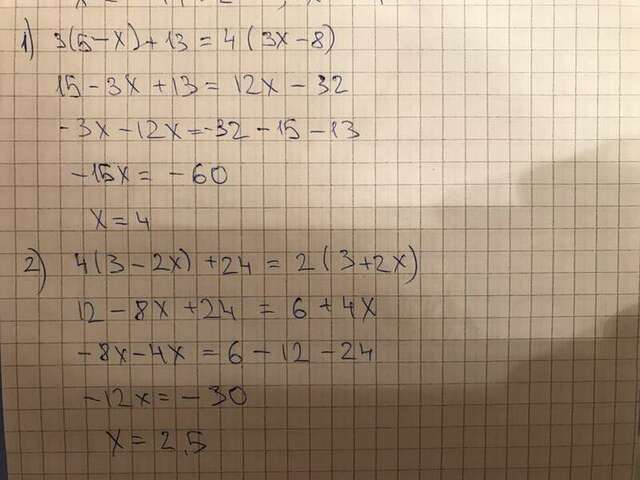 1) 3(5-x)+13=4(3x-8)
15-3x+13=12x-32
-3x-12x=-32-15-13
-15x=-60
x=4
2) 4(3-2x)+24=2(3+2x)
12-8x+24=6+4x
-8x-4x=6-12-24
-12x=-30
x=2,5